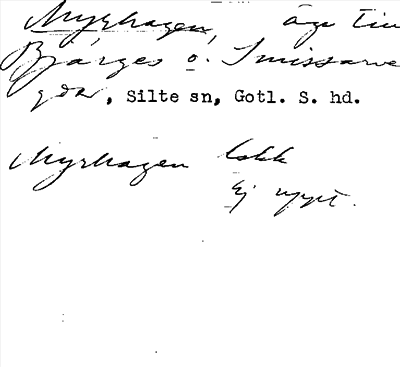 Myrhagen, äga till
Bjärges o. Smissarve
gdar, Silte sn, Gotl. S. hd.
Myrhagen Lokk
Ej uppt.